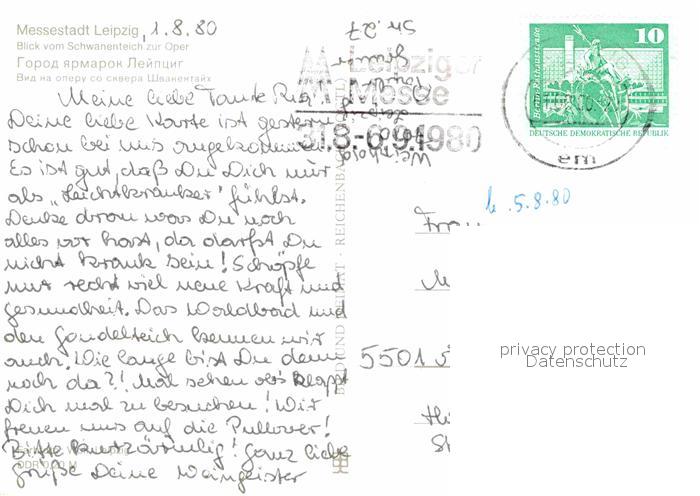 Messestadt Leipzig, 1.8.80
Blick vom Schwanenteich zur Oper
Город ярмарок Лейпциг
Вид на оперу со сквера Шванентайх
Meine liebe Tante
Deine liebe Karte ist gestern
schon bei uns angekommen.
Es ist gut, daß Du Dich nur
als „Leichtkranker" fühlst.
Denke dran was Du noch
alles vor hast, da darfst Du
nicht krank sein! Schöpfe
nur recht viel neue Kraft und
Gesundheit. Das Waldbad und
den Gondelteich kennen wir
auch. Wie lange bist Du denn
noch da?! Mal sehen ob's klappt
Dich mal zu besuchen! Wir
freuen uns auf die Pullover!
Bitte kurzärmlig! Ganz liebe
Grüße Deine Weingeister
DDR 0,20 M
BILD UND HEIMAT · REICHENBACH
Leipziger
Messe
31.8.-6.9.1980
10
Berlin · Rathausstraße
DEUTSCHE DEMOKRATISCHE REPUBLIK
em
5.8.80
Fr
5501
privacy protection
Datenschutz